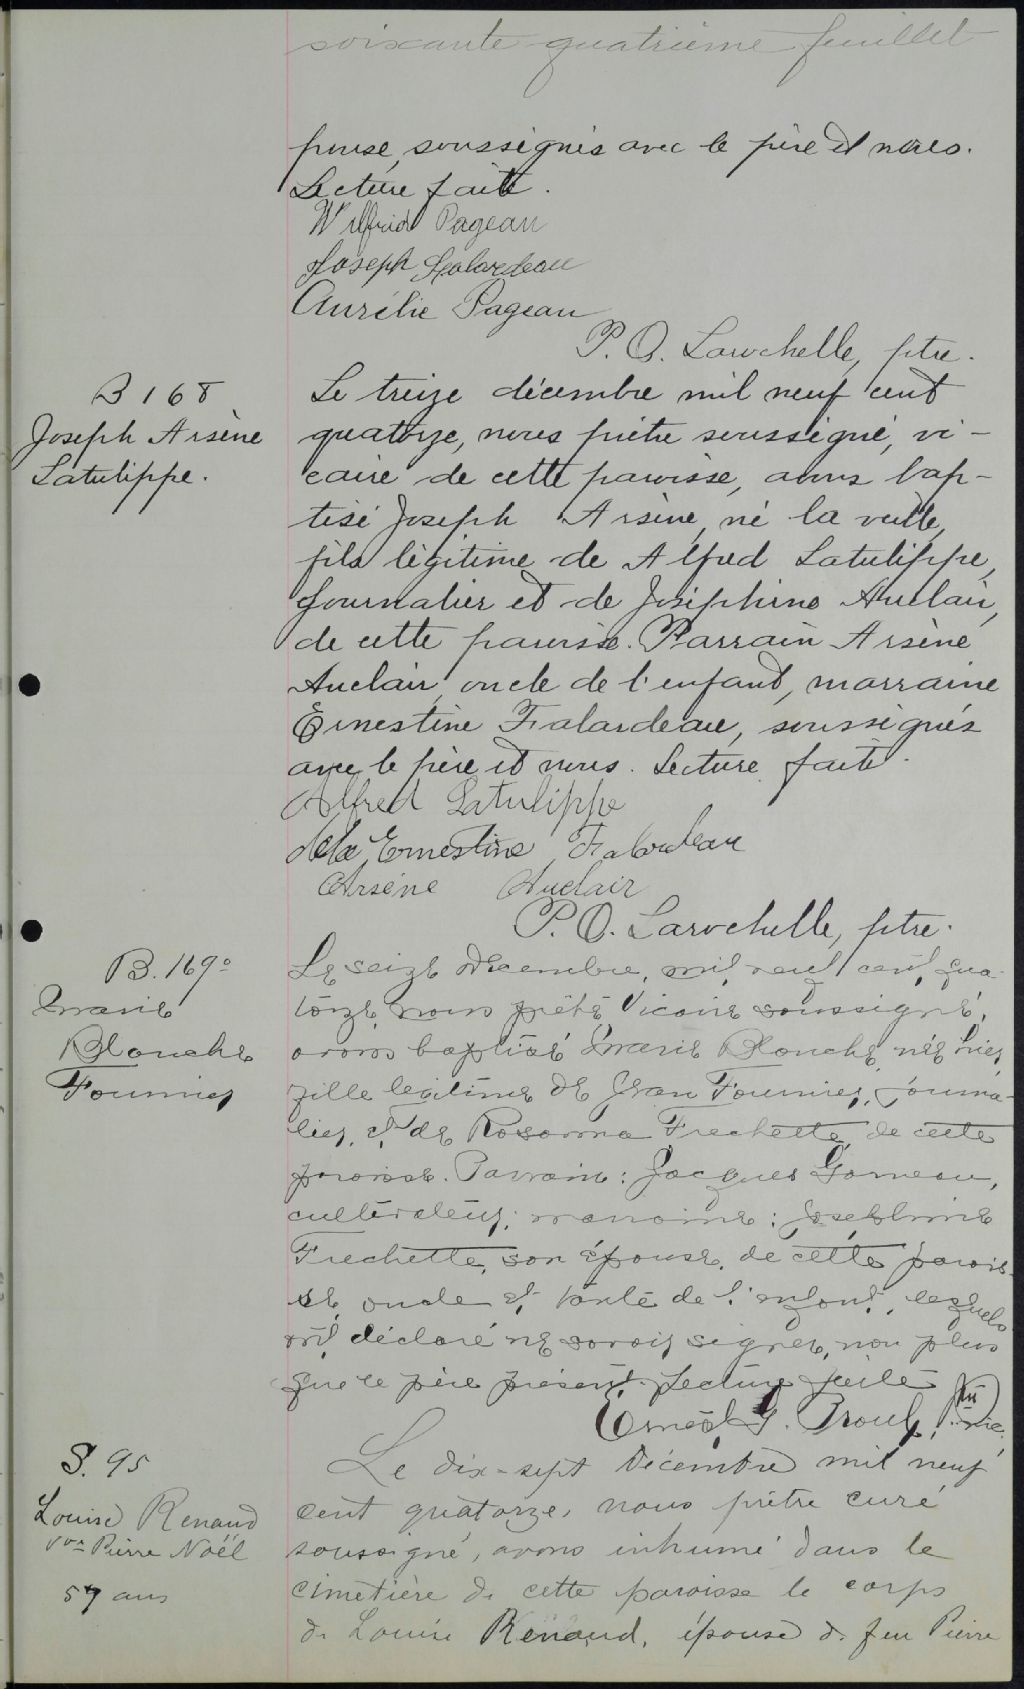 soixante-quatrième feuillet
pouse, soussignés avec le père et nous.
Lecture faite.
Wilfrid Pageau
Joseph Falardeau
Aurélie Pageau
P. O. Larochelle, ptre.
B 168
Joseph Arsène
Latulippe.
Le treize décembre mil neuf cent
quatorze, nous prêtre soussigné, vi-
caire de cette paroisse, avons bap-
tisé Joseph Arsène, né la veille,
fils légitime de Alfred Latulippe,
journalier et de Joséphine Auclair,
de cette paroisse. Parrain Arsène
Auclair, oncle de l'enfant, marraine
Ernestine Falardeau, soussignés
avec le père et nous. Lecture faite.
Alfred Latulippe
Delle Ernestine Falardeau
Arsène Auclair
P. O. Larochelle, ptre.
B. 169°
Marie
Blanche
Fournier
Le seize décembre, mil neuf cent qua-
torze, nous prêtre Vicaire soussigné,
avons baptisé Marie Blanche, née hier,
fille légitime de Jean Fournier, journa-
lier, et de Rosanna Frechette, de cette
paroisse. Parrain: Jacques Garneau,
cultivateur; marraine: Josephine
Frechette, son épouse, de cette parois-
se, oncle et tante de l'enfant, lesquels
ont déclaré ne savoir signer, non plus
que le père présent. Lecture faite
Ernest G. Proulx, ptre vic.
S. 95
Louise Renaud
vve Pierre Noël
57 ans
Le dix-sept Décembre mil neuf
cent quatorze, nous prêtre curé
soussigné, avons inhumé dans le
cimetière de cette paroisse le corps
de Louise Renaud, épouse de feu Pierre